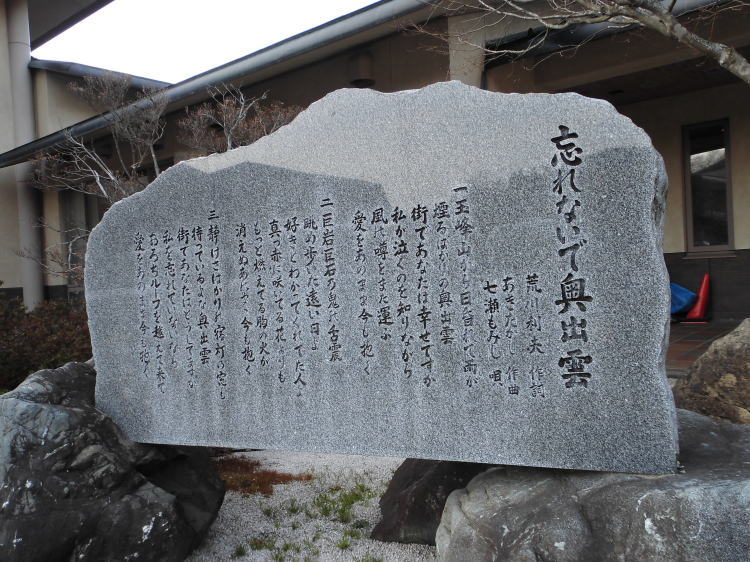 忘れないで奥出雲
荒川利夫 作詞
あきたかし 作曲
七瀬もみじ 唄
一 玉峰山から日が昏れて雨が
煙るばかりの奥出雲
街であなたは幸せですか
私が泣くのを知りながら
風は噂をまた運ぶ
愛をあのまま今も抱く
二 巨岩巨石の鬼の舌震
眺め歩いた遠い日よ
好きとわかってくれてた人よ
真っ赤に咲いてる花よりも
もっと燃えてる胸の火が
消えぬあなたを今も抱く
三 静けさばかりの宿の
待っているよな奥出雲
街であなたはどうしてますか
私を忘れていないなら
おろちループを越えて来て
愛をあのまま今も抱く